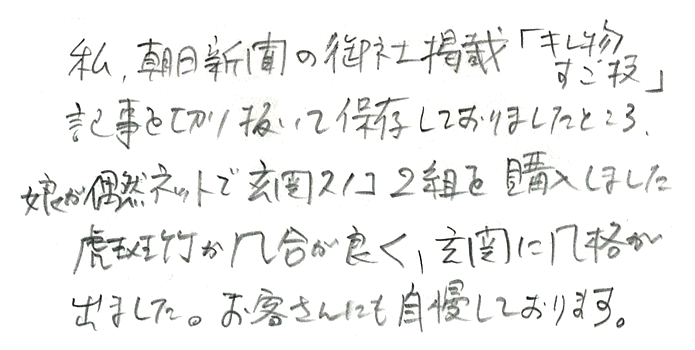 私、朝日新聞の御社掲載「キレ物すご技」
記事を切り抜いて保存しておりましたところ、
娘が偶然ネットで玄関スノコ2組を購入しました
虎斑竹が几合が良く、玄関に几格が
出ました。お客さんにも自慢しております。